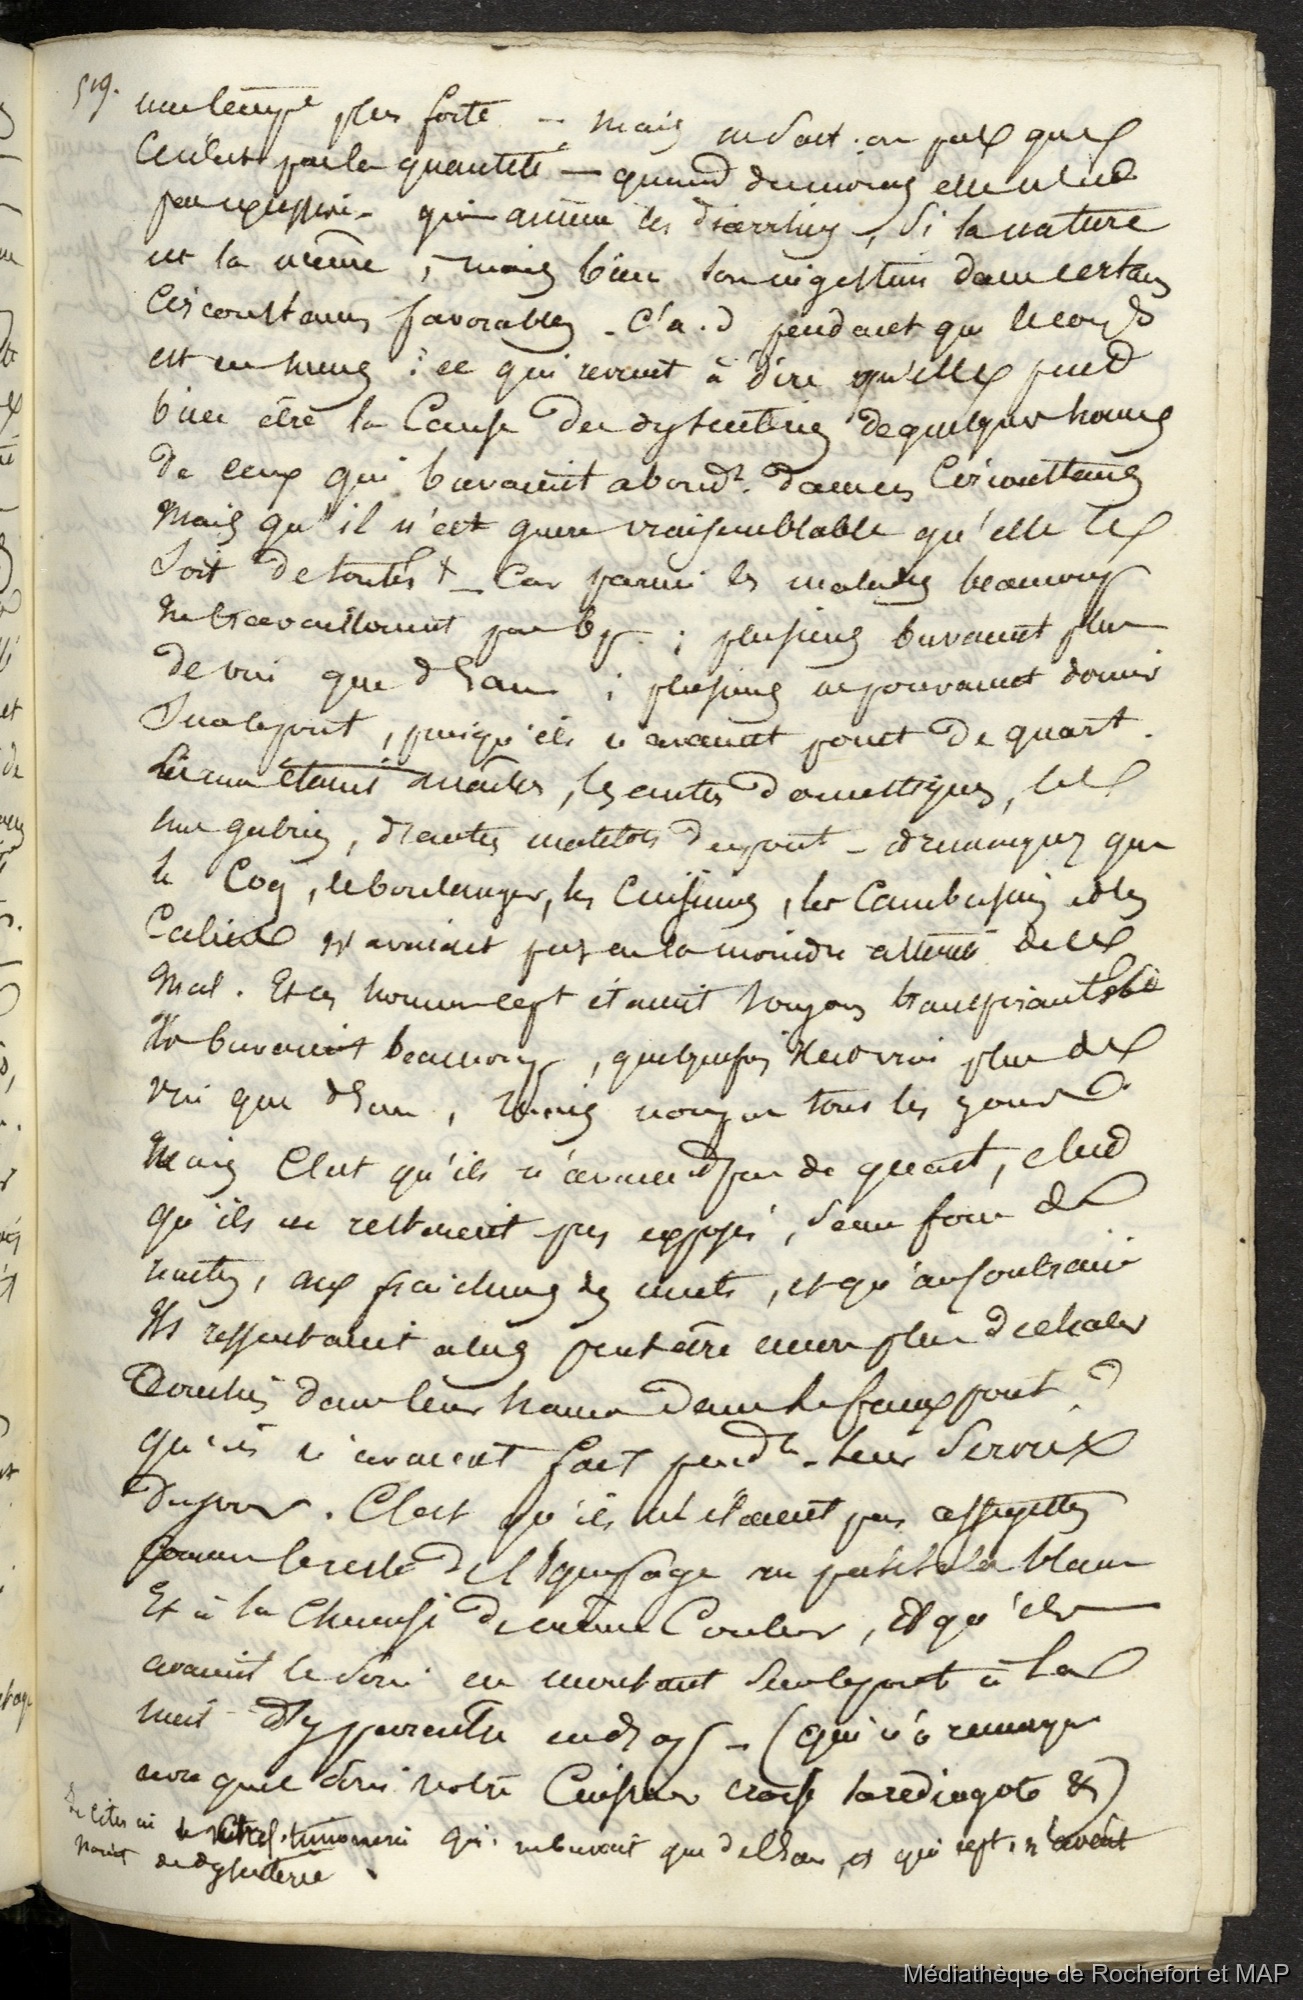 519.
plus forte — mais ne sait-on pas que
ce n'est pas la quantité — quand du moins elle n'est
pas excessive — qui amène les diarrhées, si la nature
est la même, mais bien son ingestion dans certaines
circonstances favorables - c'a.d pendant que le corps
est en sueur : ce qui revient à dire qu'elle peut
bien être la cause des dysenteries de quelques hommes
de ceux qui buvaient abondt. dans ces circonstances
Mais qu'il n'est guere vraisemblable qu'elle le
soit de toutes + — Car parmi les malades beaucoup
ne travaillaient pas ; plusieurs buvaient plus
de vin que d'eau ; plusieurs ne pouvaient dormir
sur le pont, puisqu'ils n'avaient point de quart.
étaient malades, les autres domestiques, les
d'autres matelots du pont - et remarquez que
le Coq, le boulanger, les cuisiniers, les cambusiers et les
Caliers n'avaient pas eu la moindre atteinte de ce
mal. Et ces hommes cept étaient toujours transpirants
Ils buvaient beaucoup, quelquefois il est vrai plus de
vin que d'eau, mais non pas tous les jours
Mais c'est qu'ils n'avaient pas de quart, c'est
qu'ils ne restaient pas exposés, sans foin de
nattes, aux fraicheurs des nuits, et qu'au contraire
Ils ressentaient alors peut être encore plus de chaleur
Couchés dans leur hamac dans le faux pont
qu'ils n'avaient fait pendt. leur service
du jour. C'est qu'ils n'étaient pas assujettis
comme le reste de l'équipage au pantalon blanc
Et à la chemise de même couleur, et qu'ils
avaient le soin en montant sur le pont à la
nuit d'y paraitre en drap — (qui n'a remarqué
notre cuisinier la redingote &)
Je citerai ici qui ne buvait que de l'eau, et qui cept. n'avait
point de dysenterie.
Médiathèque de Rochefort et MAP